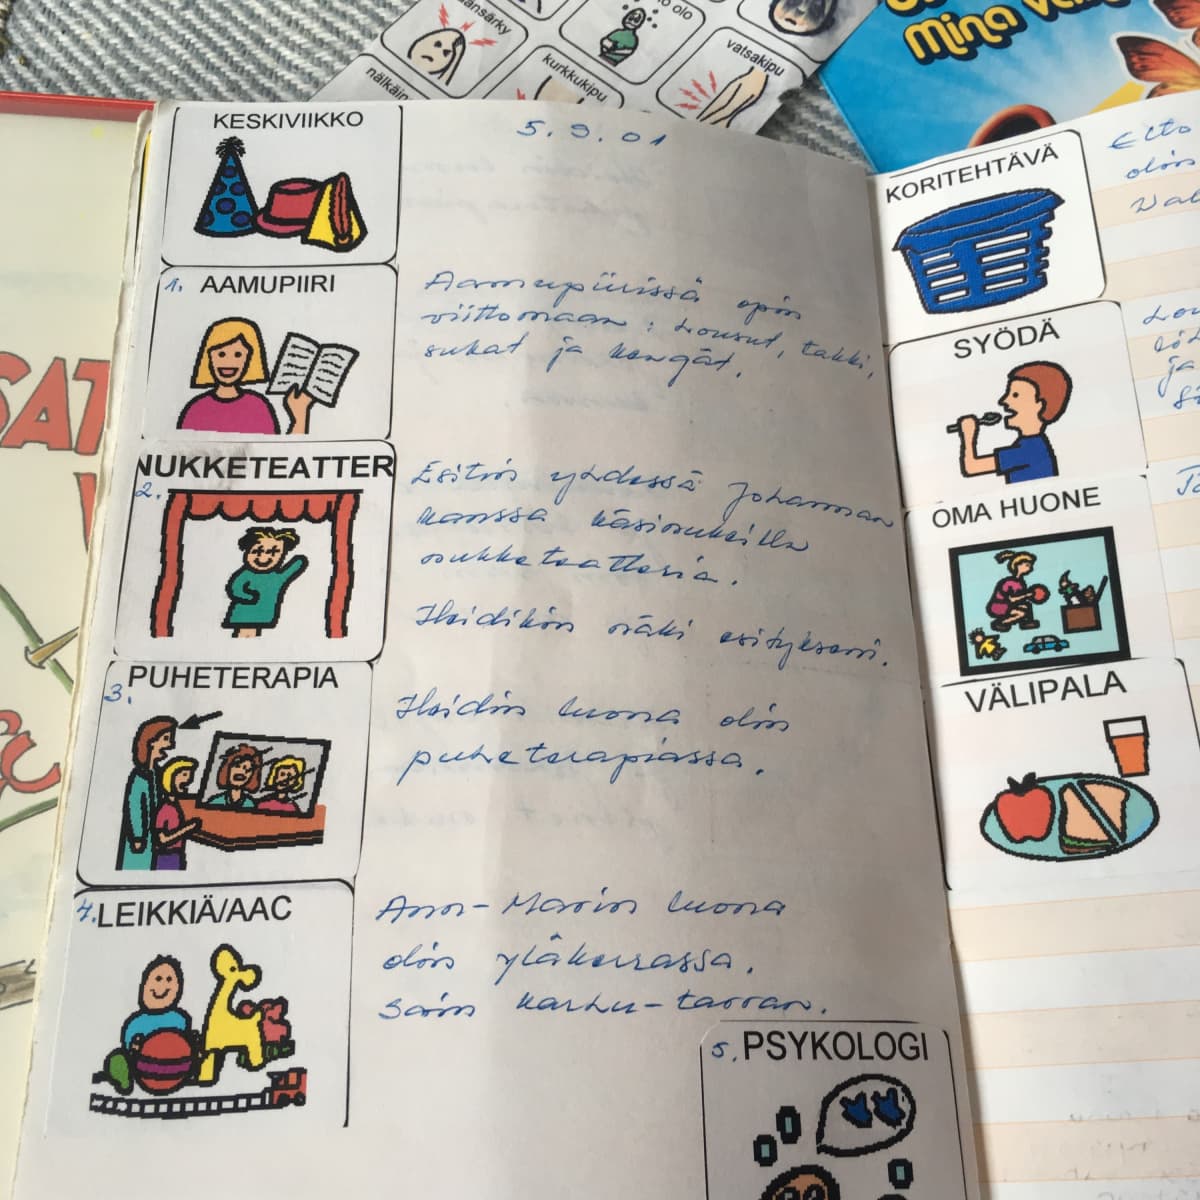 änsärky
olo
nälkäin
kurkkukipu
vatsakipu
Minä
KESKIVIIKKO
5.9.01
1. AAMUPIIRI
Aamupiirissä opin
viittomaan: housut, takki,
sukat ja kengät.
NUKKETEATTER
2.
Esitin yhdessä Johannan
kanssa käsinukeilla
nukketeatteria.
Heidikin näki esitykseni.
3. PUHETERAPIA
Heidin luona olin
puheterapiassa.
4. LEIKKIÄ/AAC
Ann-Marin luona
olin yläkerrassa.
Sain karhu-tarran.
5. PSYKOLOGI
KORITEHTÄVÄ
olin
SYÖDÄ
ja
OMA HUONE
VÄLIPALA
SAT